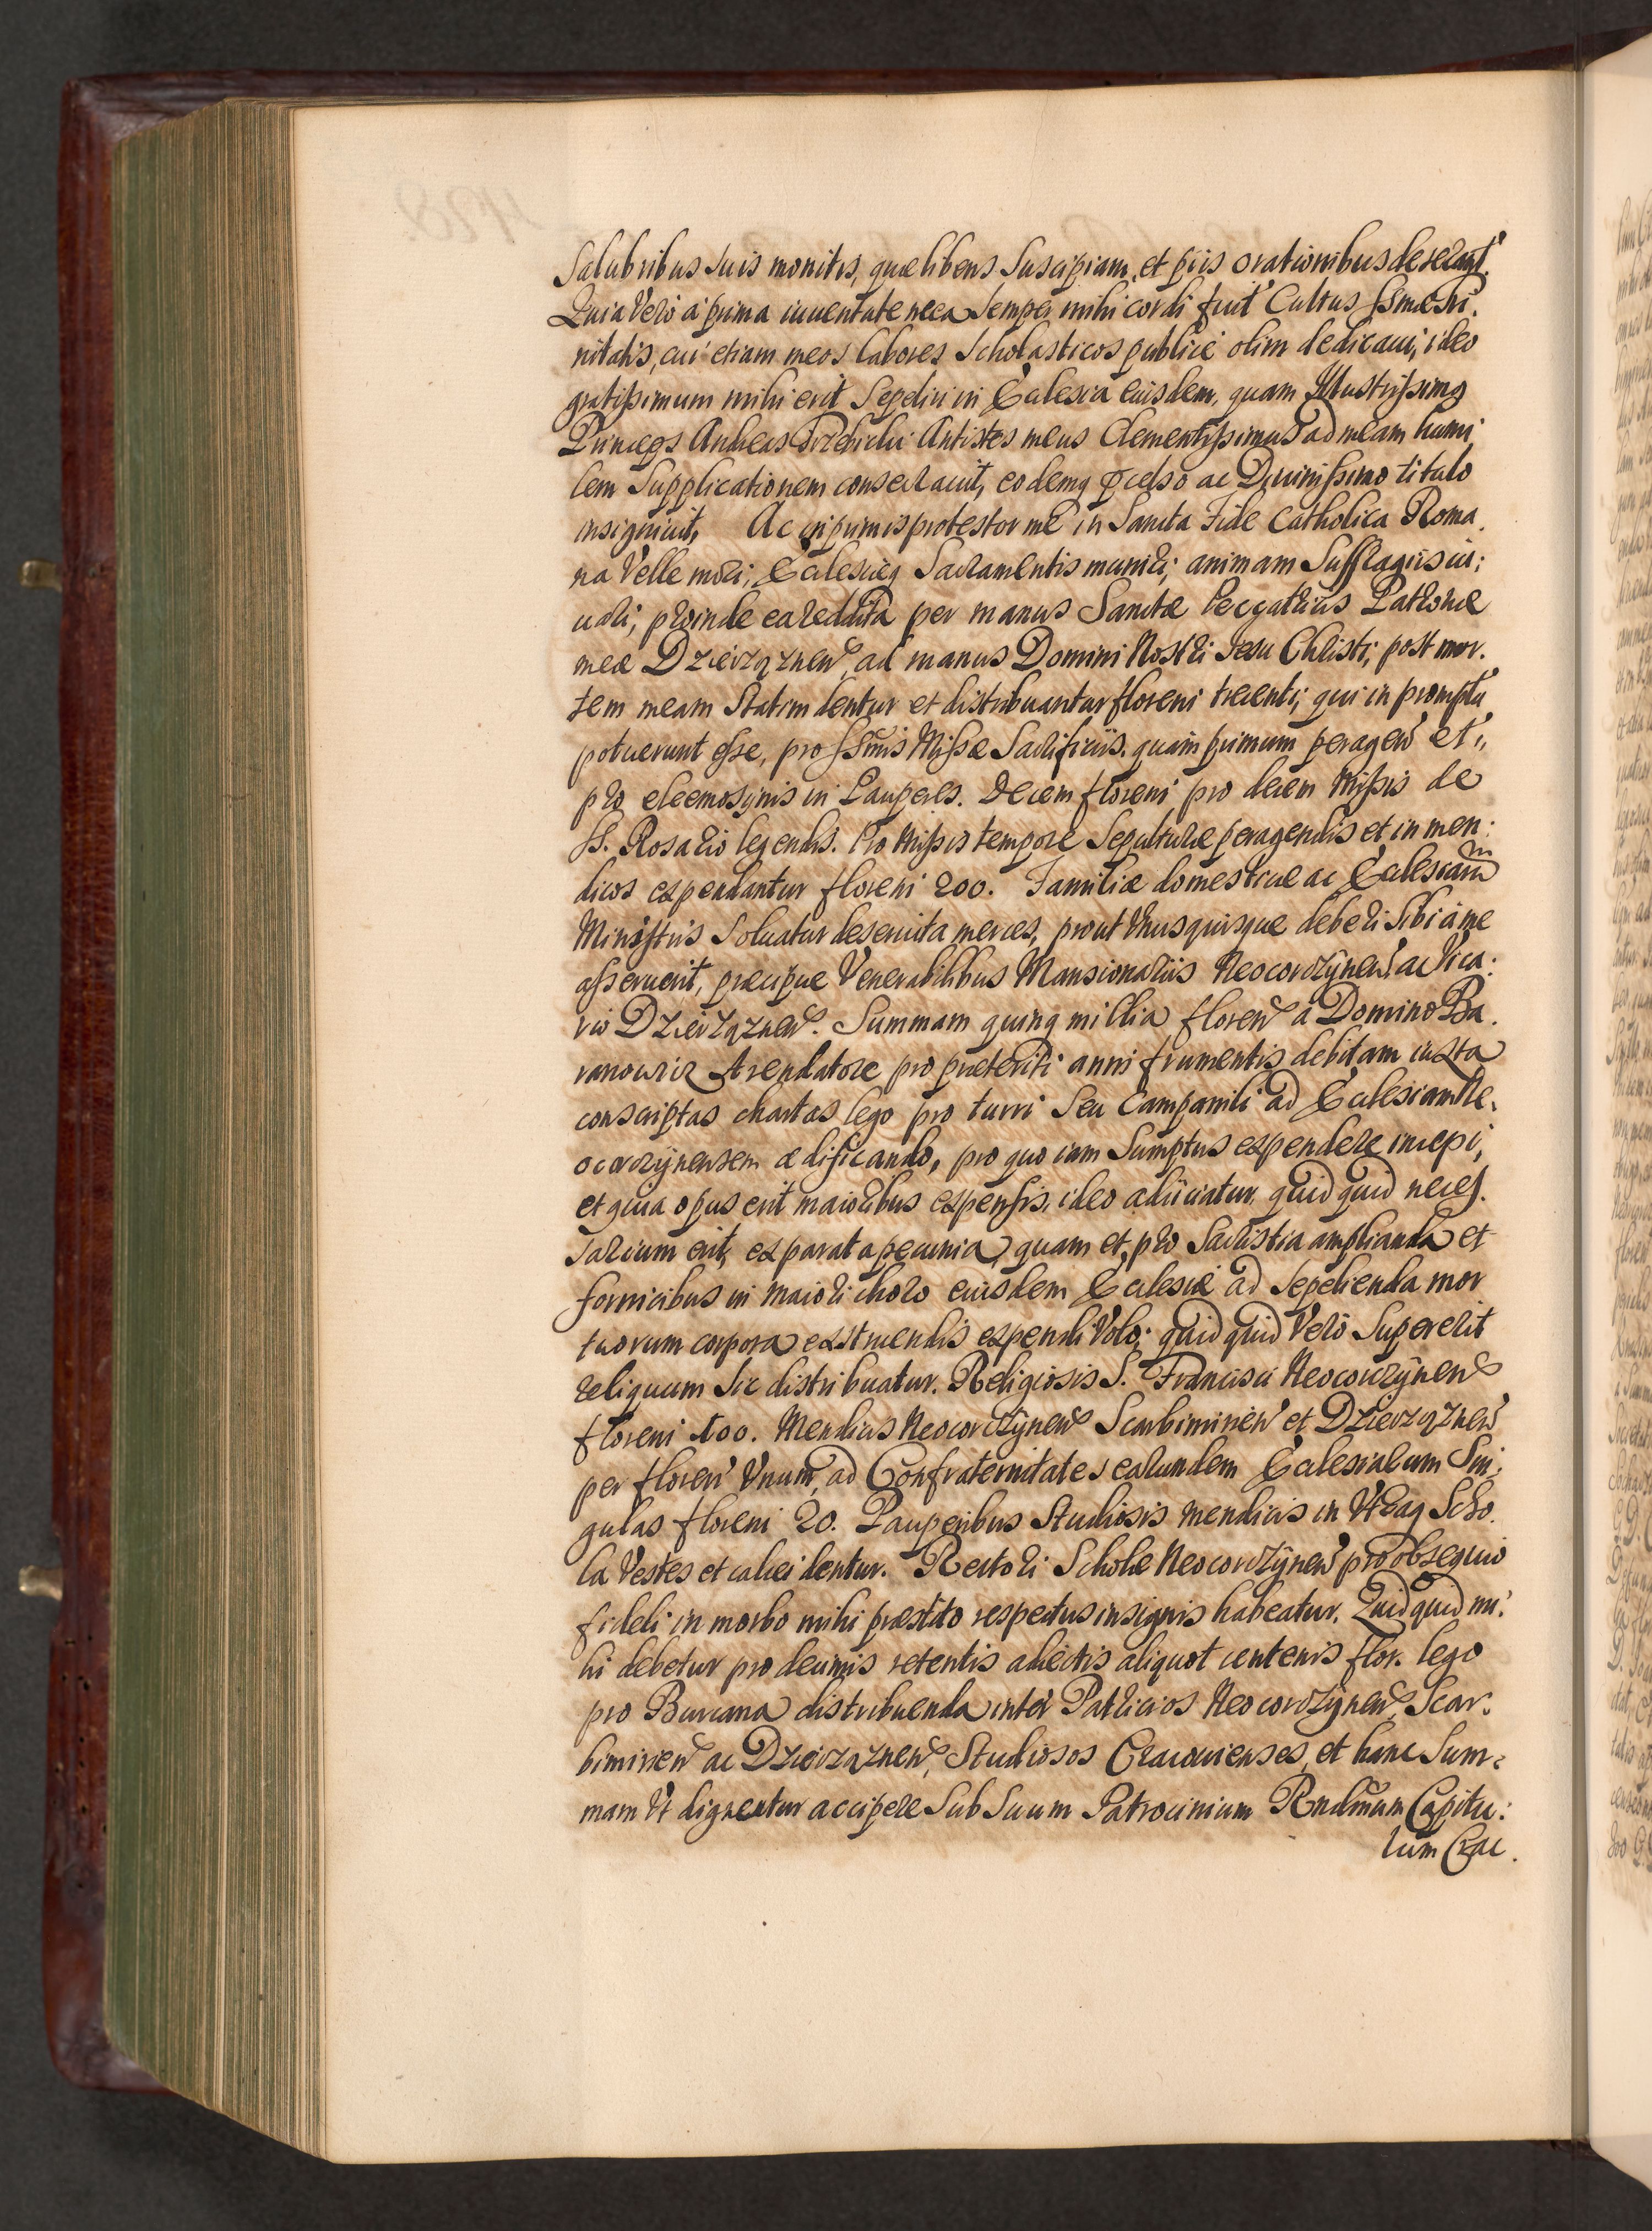 Salubribus suis monitis, quæ libens Suscipiam, et piis orationibus deserant.
Quia Vero a prima iuuentute mea Semper mihi cordi fuit Cultus SSmæ Tri,
nitatis, cui etiam meos labores Scholasticos publice olim dedicaui, ideo
gratissimum mihi erit Sepeliri in Ecclesia eiusdem, quam Illustrissimus
Princeps Andreas Trzebicki Antistes meus Clementissimus ad meam humi,
lem Supplicationem consecrauit, eodemq præcelso ac Diuinissimo titulo
insigniuit, Ac inprimis protestor me in Sancta Fide Catholica Roma,
na Velle mori, Ecclesiæq Sacramentis muniri, animam Suffragiis iu:
uari, proinde ea reddita per manus Sanctæ Peccatricis Patronæ
meæ Dzierząznen, ad manus Domini Nostri Jesu Christi, post mor,
tem meam Statim dentur et distribuantur floreni trecenti, qui in promptu
potuerunt esse, pro SSmis Missæ Sacrificiis quam primum peragen et,,
pro eleemosynis in Pauperes. Decem floreni pro decem Missis de
SS. Rosario legendis. Pro Missis tempore Sepulturæ peragendis et in men:
dicos expendantur floreni 200. Familiæ domesticæ ac Ecclesiarum
Ministris Soluatur deseruita merces, prout Vnusquisque deberi sibi a me
asseruerit, præcipue Venerabilibus Mansionariis Neocorczÿnen ac Vica:
rio Dzierząznen. Summam quinq millia floren a Domino Ba,
ranowicz Arendatore pro præteriti anni frumentis debitam iuxta
conscriptas chartas lego pro turri Seu Campanili ad Ecclesiam Ne,
ocorczÿnensem ædificando, pro quo iam Sumptus expendere incepi,
et quia opus erit maioribus expensis, ideo adiiciatur quidquid neces,
sarium erit, ex parata pecunia, quam et pro Sacristia amplianda et
fornicibus in maiori choro eiusdem Ecclesiæ ad Sepelienda mor
tuorum corpora exstruendis expendi Volo, quidquid Vero Supererit
reliquum Sic distribuatur. Religiosis S. Francisci Neocorczÿnen
floreni 100. Mendicis Neocorczÿnen Scarbimirien et Dzierząznen
per floren Vnum, ad Confraternitates earundem Ecclesiarum Sin:
gulas floreni 20. Pauperibus Studiosis mendicis in Vtraq Scho,
la Vestes et calcei dentur. Rectori Scholæ Neocorczÿnen pro obsequio
fideli in morbo mihi præstito respectus insignis habeatur. Quidquid mi:
hi debetur pro decimis retentis adiectis aliquot centenis flor. lego
pro Burcana distribuenda inter Patricios Neocorczÿnen, Scar:
bimirien ac Dzierząznen, Studiosos Cracouienses, et hanc Sum:
mam Vt dignentur accipere Sub Suum Patrocinium Rndmum Capitu:
lum Crac.